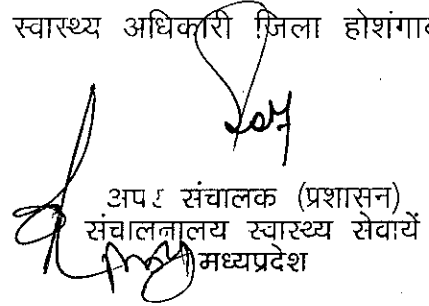 स्वास्थ्य अधिकारी जिला होशंगाबा
अपर संचालक (प्रशासन)
संचालनालय स्वास्थ्य सेवायें
मध्यप्रदेश